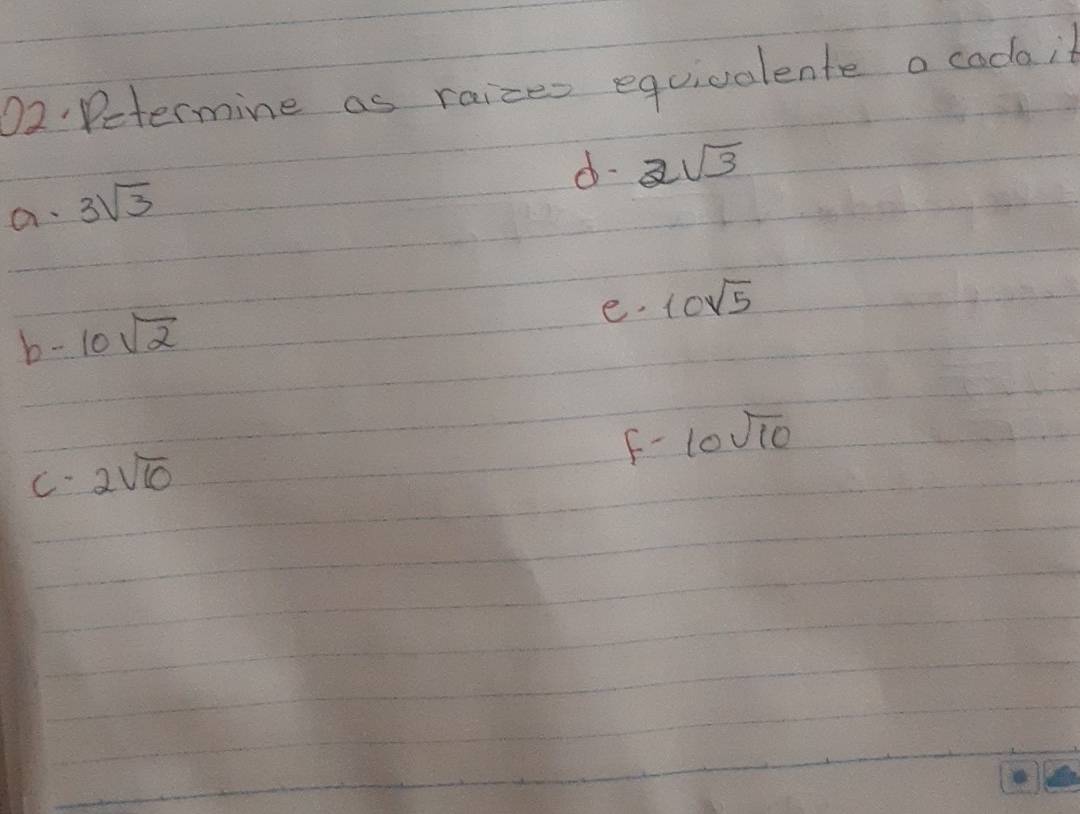 02. Determine as raizes equivalente a cada it
a. 3√3
d. 2√3
b- 10√2
e. 10√5
c- 2√10
f- 10√10